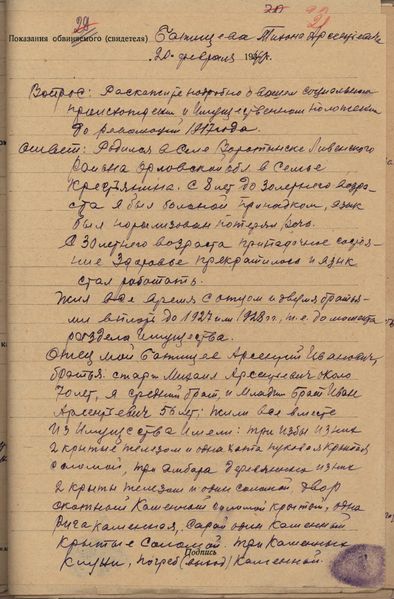 28
28
Показания обвиняемого (свидетеля) Батищева Тихона Арсеньевича
20 февраля 194
Вопрос: Раскажите подробно о вашем социальном
происхождении и имущественном положении
до революции 1917 года.
Ответ: Родился в селе Воротынске Ливенского
района Орловской обл в семье
Крестьянина. С 8 лет до 30 летнего возра-
ста я был больной припадком, язык
был парализован потерял речь.
С 30 летнего возраста припадочное состоя-
ние здоровье прекратилось и язык
стал работать.
Жил все время с отцом и двумя братья-
ми вплоть до 1927 или 1928 гг, т.е. до момента
раздела имущества.
Отец мой Батищев Арсентий Иванович,
братья: старш Михаил Арсентьевич около
70 лет, я средний брат, и младш брат Иван
Арсентьевич 56 лет; жили все вместе
Из имущества имели: три избы из них
2 крытые железом и одна хата крытая
соломой, три амбара деревянных из них
2 крыты железом и один соломой двор
каменный соломой крытый, одна
рига каменная, сарай один каменный
крытые соломой, три каменных
клуни, погреб (выход) каменной.
Подпись